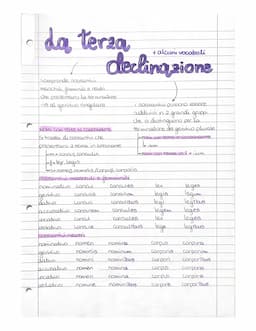 la terza
+ alcuni vocaboli
declinazione
comprende sostantivi
maschili, femminili e neutri
che presentano la terminazione
-is al genitivo singolare
i sostantivi possono essere
suddivisi in 2 grandi gruppi
che si distinguono per la
terminazione del genitivo plurale
si tratta di sostantivi che
presentano il tema in consonante
consul, consulis
lex, legis
corpus, corporis
sostantivi maschili e femminili
nominativo consul consules lex leges
genitivo consulis consulum legis legum
dativo consuli consulibus legi legibus
accusativo consulem consules legem leges
vocativo consul consules lex leges
ablativo consule consulibus lege legibus
sostantivi neutri
nominativo nomen nomina corpus corpora
genitivo nominis nominum corporis corporum
dativo nomini nominibus corpori corporibus
accusativo nomen nomina corpus corpora
vocativo nomen nomina corpus corpora
ablativo nomine nominibus corpore corporibus